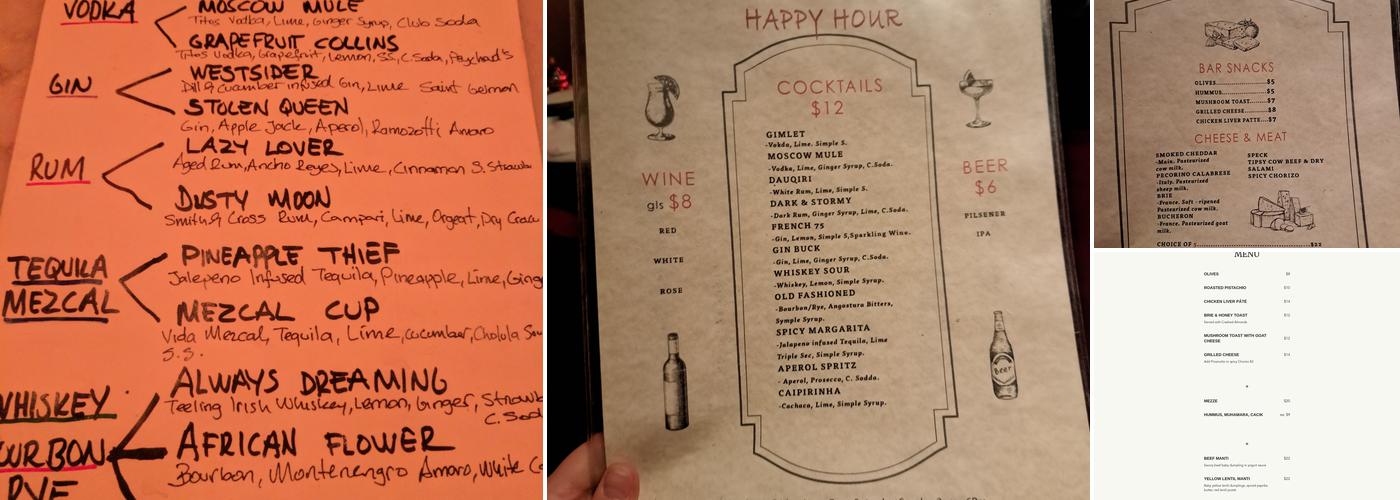 VODKA
MOSCOW MULE
Titos Vodka, Lime, Ginger Syrup, Club Soda
GRAPEFRUIT COLLINS
Titos Vodka, Grapefruit, Lemon, SS, C.Soda, Peychad's
GIN
WESTSIDER
Dill & cucumber infused Gin, Lime Saint Germon
STOLEN QUEEN
Gin, Apple Jack, Aperol, Ramozotti Amaro
RUM
LAZY LOVER
Aged Rum, Ancho Reyes, Lime, Cinnamon S. Strawb
DUSTY MOON
Smith & Cross Rum, Campari, Lime, Orgeat, Dry
TEQUILA
MEZCAL
PINEAPPLE THIEF
Jalepeno Infused Tequila, Pineapple, Lime, Ginge
MEZCAL CUP
Vida Mezcal, Tequila, Lime, cucumber, Cholola
S.S.
WHISKEY
OURBON
RYE
ALWAYS DREAMING
Teeling Irish Whiskey, Lemon, Ginger, Strawb
C. Sod
AFRICAN FLOWER
Bourbon, Montenengro Amaro, White
HAPPY HOUR
COCKTAILS
$12
GIMLET
-Vokda, Lime. Simple S.
MOSCOW MULE
-Vodka, Lime, Ginger Syrup, C.Soda.
DAUQIRI
-White Rum, Lime, Simple S.
DARK & STORMY
-Dark Rum, Ginger Syrup, Lime, C.Soda.
FRENCH 75
-Gin, Lemon, Simple S,Sparkling Wine.
GIN BUCK
-Gin, Lime, Ginger Syrup, C.Soda.
WHISKEY SOUR
-Whiskey, Lemon, Simple Syrup.
OLD FASHIONED
-Bourbon/Rye, Angostura Bitters,
Symple Syrup.
SPICY MARGARITA
-Jalapeno infused Tequila, Lime
Triple Sec, Simple Syrup.
APEROL SPRITZ
- Aperol, Prosecco, C. Sodda.
CAIPIRINHA
-Cachaca, Lime, Simple Syrup.
WINE
gls $8
RED
WHITE
ROSE
BEER
$6
PILSENER
IPA
Beer
BAR SNACKS
OLIVES.....$5
HUMMUS.....$5
MUSHROOM TOAST.....$7
GRILLED CHEESE.....$8
CHICKEN LIVER PATTE....$7
CHEESE & MEAT
SMOKED CHEDDAR
-Main. Pasteurized
cow milk.
PECORINO CALABRESE
-Italy. Pasteurized
sheep milk.
BRIE
-France. Soft - ripened
Pasteurized cow milk.
BUCHERON
-France. Pasteurized goat
milk.
SPECK
TIPSY COW BEEF & DRY
SALAMI
SPICY CHORIZO
CHOICE OF 5.....$22
MENU
OLIVES $9
ROASTED PISTACHIO $10
CHICKEN LIVER PÂTÉ $14
BRIE & HONEY TOAST $12
Served with Crushed Almonds
MUSHROOM TOAST WITH GOAT
CHEESE $12
GRILLED CHEESE $14
Add Prosciutto or spicy Chorizo $3
MEZZE $20
HUMMUS, MUHAMARA, CACIK ea. $9
BEEF MANTI $22
Savory beef baby dumpling in yogurt sauce
YELLOW LENTIL MANTI $22
Baby yellow lentil dumplings, spiced paprika
butter, red lentil purée